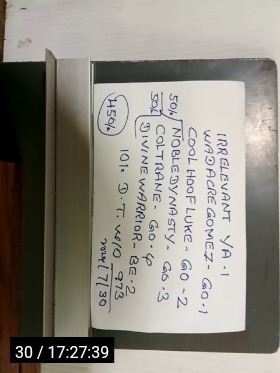 IRRELEVANT YA.1
WADACREGOMEZ - GO.1
COOL HOOF LUKE - GO - 2
50% NOBLE DYNASTY - GO.3
50% COLTRANE - GO.4
DIVINE WARRIOR - BE.2
10% D.T. W/O 973
450%
2024/7/30
30 / 17:27:39